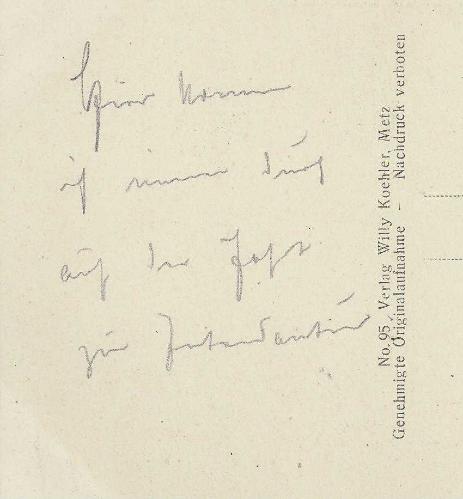 Hier komm
ich immer durch
auf der Fahrt
zur Intendantur
No. 95. Verlag Willy Koehler, Metz
Genehmigte Originalaufnahme – Nachdruck verboten